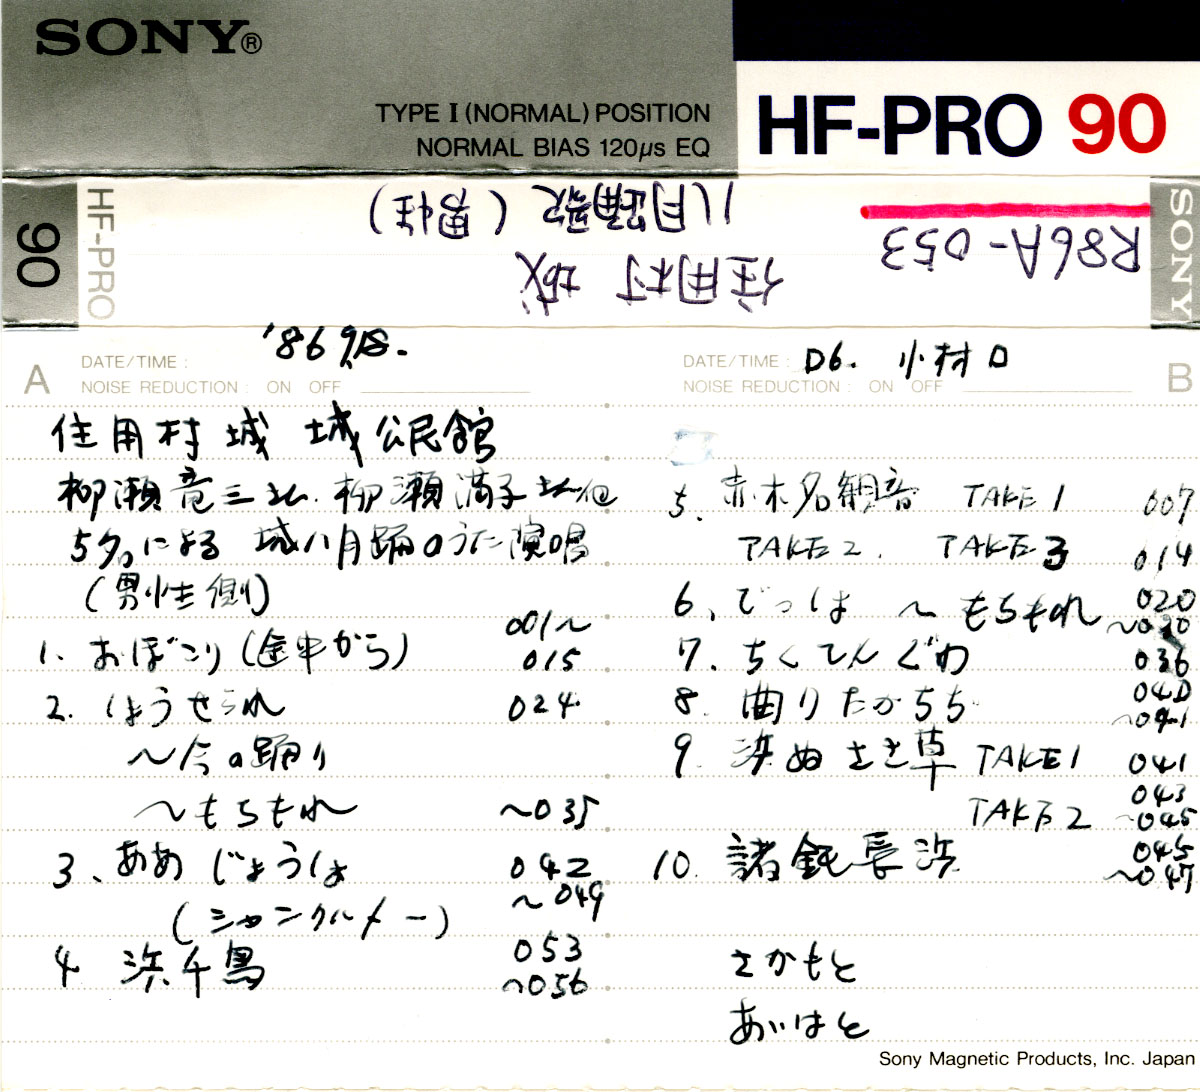 SONY®
TYPE I (NORMAL) POSITION
NORMAL BIAS 120μs EQ
HF-PRO 90
90
HF-PRO
R86A-053
住用村 城
八月踊歌(男性)
SONY
A
DATE/TIME : '86 9/18.
NOISE REDUCTION : ON OFF
住用村城 城公民館
柳瀬竜三さん. 柳瀬満子さん他
5名による 城八月踊のうた演唱
(男性側)
1. おぼこり(途中から) 001〜015
2. しょうせられ 024
〜今の踊り
〜もちもれ 〜035
3、あめ じょうしょ 042〜049
(シャンクルメー)
4 浜千鳥 053〜056
B
DATE/TIME : D6. 小村口
NOISE REDUCTION : ON OFF
5. 赤木名観音 TAKE 1 007
TAKE 2. TAKE 3 014
6、でっしょ 〜 もちもれ 020〜030
7. ちくてんぐわ 036
8. 曲りたかちち 040〜041
9. 浜ぬささ草 TAKE 1 041
TAKE 2 043〜045
10. 諸鈍長浜 045〜047
さかもと
あいはと
Sony Magnetic Products, Inc. Japan